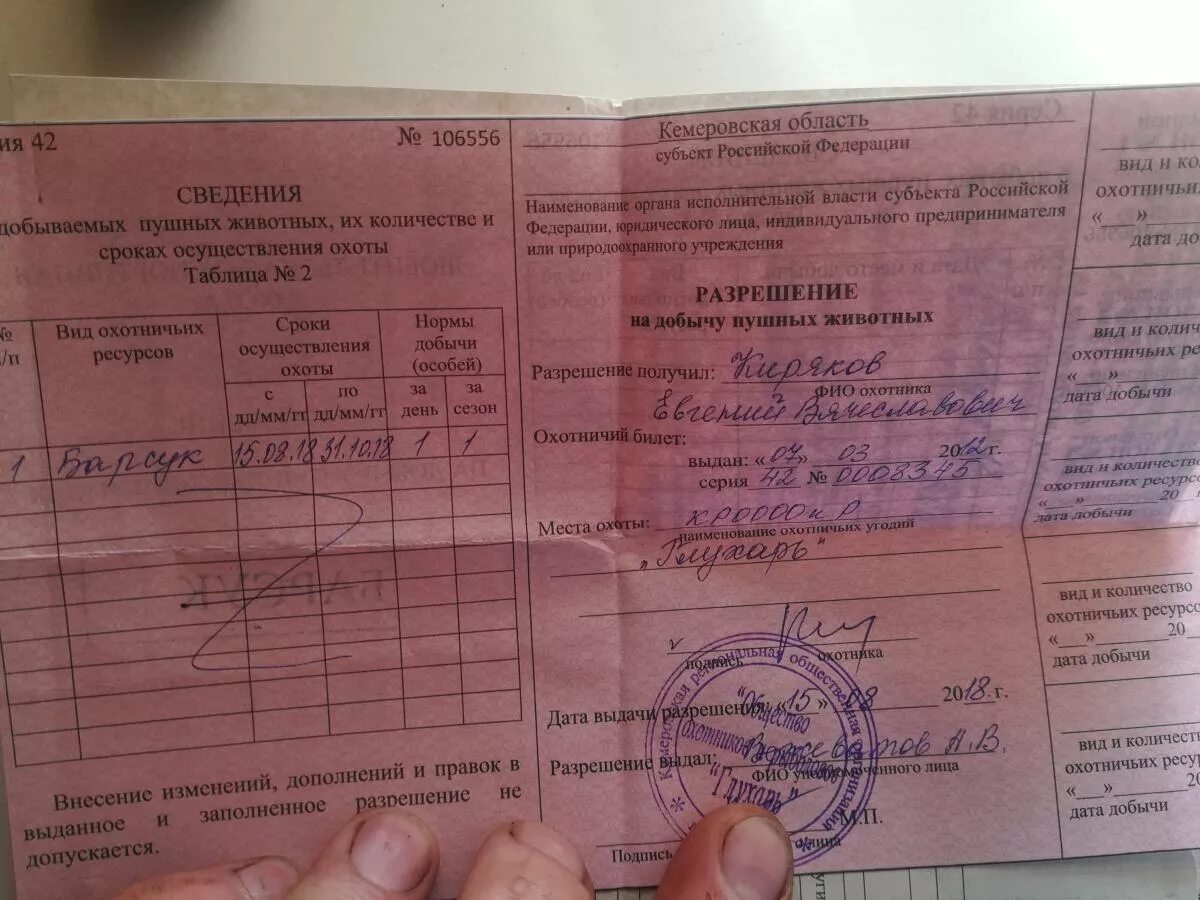 ия 42
№ 106556
СВЕДЕНИЯ
добываемых пушных животных, их количестве и
сроках осуществления охоты
Таблица № 2
№
п/п
Вид охотничьих
ресурсов
Сроки
осуществления
охоты
с
дд/мм/гг
по
дд/мм/гг
Нормы
добычи
(особей)
за
день
за
сезон
1 Барсук 15.08.18 31.10.18 1 1
БАРСУК
Внесение изменений, дополнений и правок в
выданное и заполненное разрешение не
допускается.
Кемеровская область
субъект Российской Федерации
Наименование органа исполнительной власти субъекта Российской
Федерации, юридического лица, индивидуального предпринимателя
или природоохранного учреждения
РАЗРЕШЕНИЕ
на добычу пушных животных
Разрешение получил: Киряков
ФИО охотника
Евгений Вячеславович
Охотничий билет:
выдан: «07» 03 2012 г.
серия 42 № 0008345
Места охоты: КРООООиР
наименование охотничьих угодий
„Глухарь“
v
подпись охотника
Дата выдачи разрешения: «15» 08 2018 г.
Разрешение выдал: А.В.
ФИО уполномоченного лица
М.П.
Подпись лица
Кемеровская региональная общественная организация
"Общество
охотников
"Глухарь"
вид и ко
охотничьи
«__»
дата до
вид и колич
охотничьих ре
«__»
дата добычи
вид и количество
охотничьих ресурс
«__» 20
дата добычи
вид и количество
охотничьих ресурсо
«__» 20
дата добычи
вид и количество
охотничьих ресур
«__» 20
дата добычи